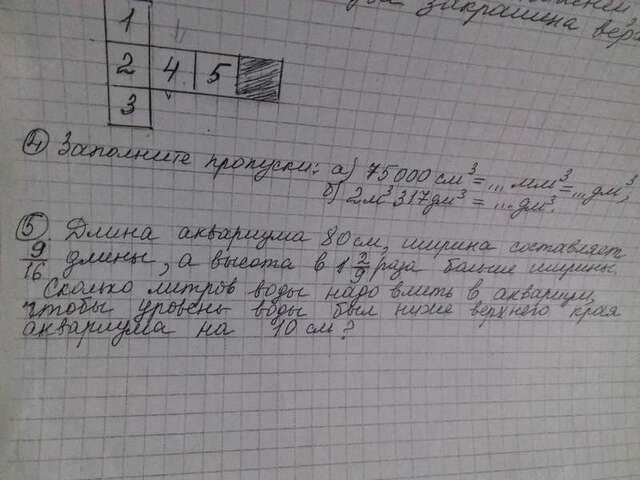 закрашена вер
1
2 4 5
3
④ Заполните пропуски: а) 75000 см³ = ... мм³ = ... дм³
б) 2 м³ 317 дм³ = ... дм³.
⑤ Длина аквариума 80 см, ширина составляет
9/16 длины, а высота в 1 2/9 раза больше ширины.
Сколько литров воды надо влить в аквариум,
чтобы уровень воды был ниже верхнего края
аквариума на 10 см?